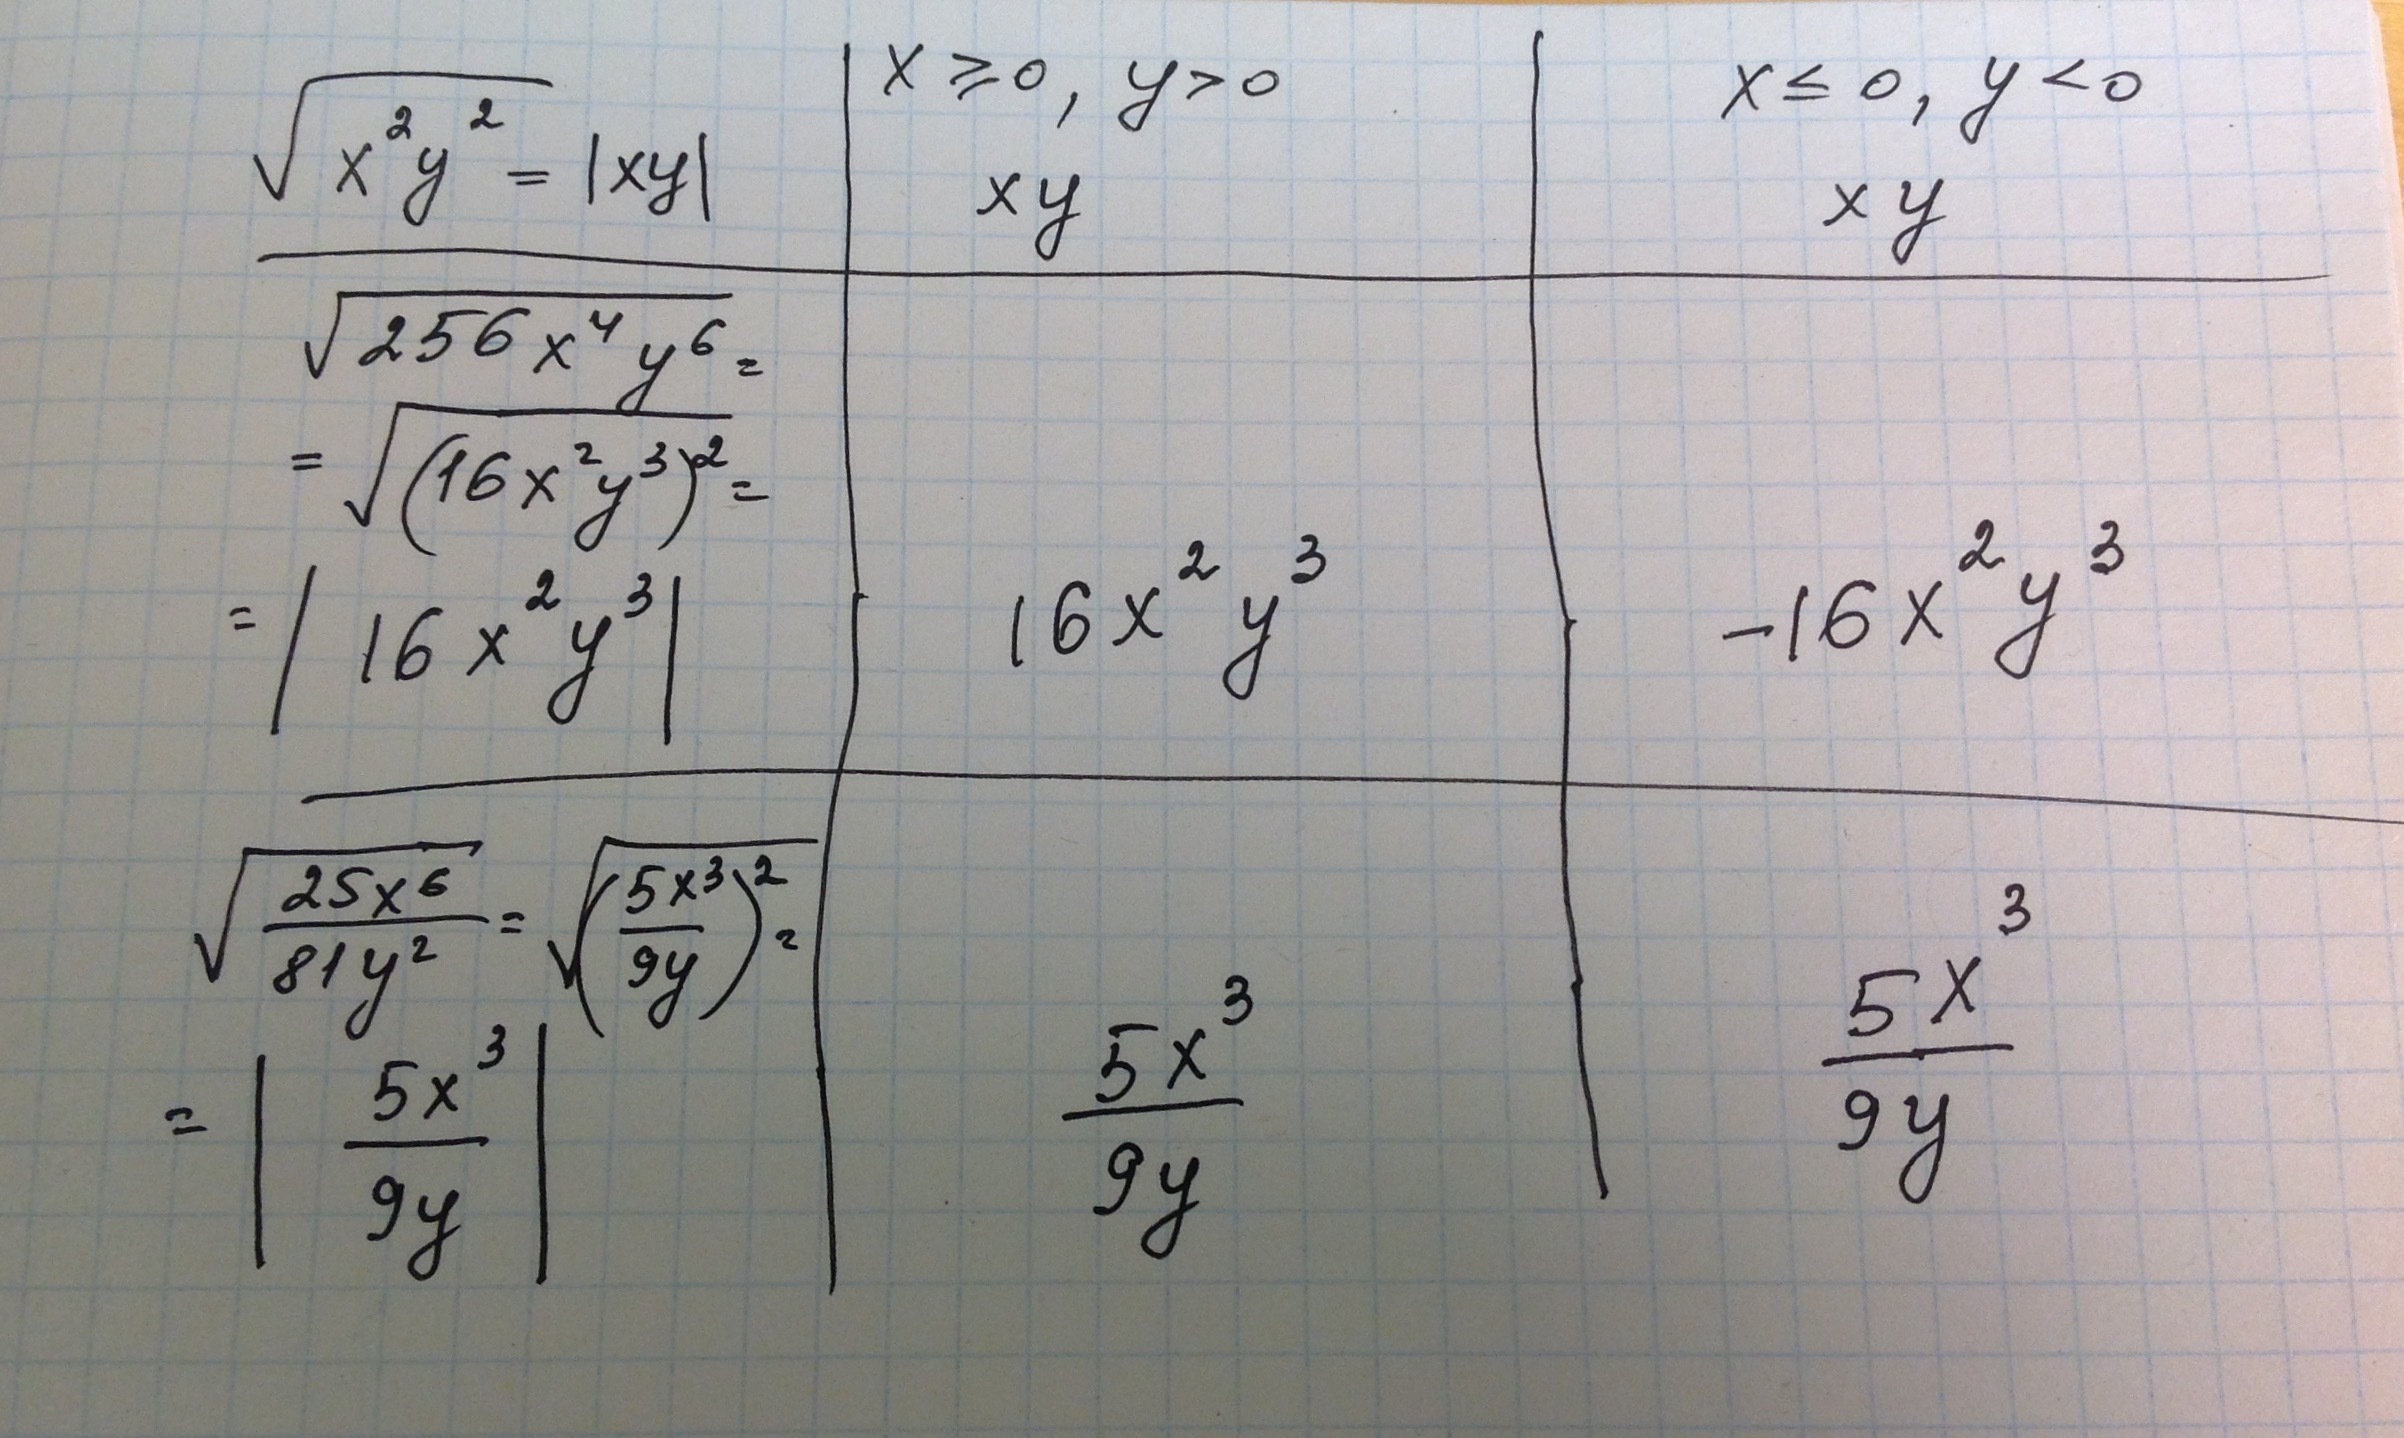 √x²y² = |xy|
x ≥ 0, y > 0
xy
x ≤ 0, y < 0
xy
√256x⁴y⁶ =
= √(16x²y³)² =
= |16x²y³|
16x²y³
-16x²y³
√25x⁶/81y² = √(5x³/9y)² =
= |5x³/9y|
5x³/9y
5x³/9y